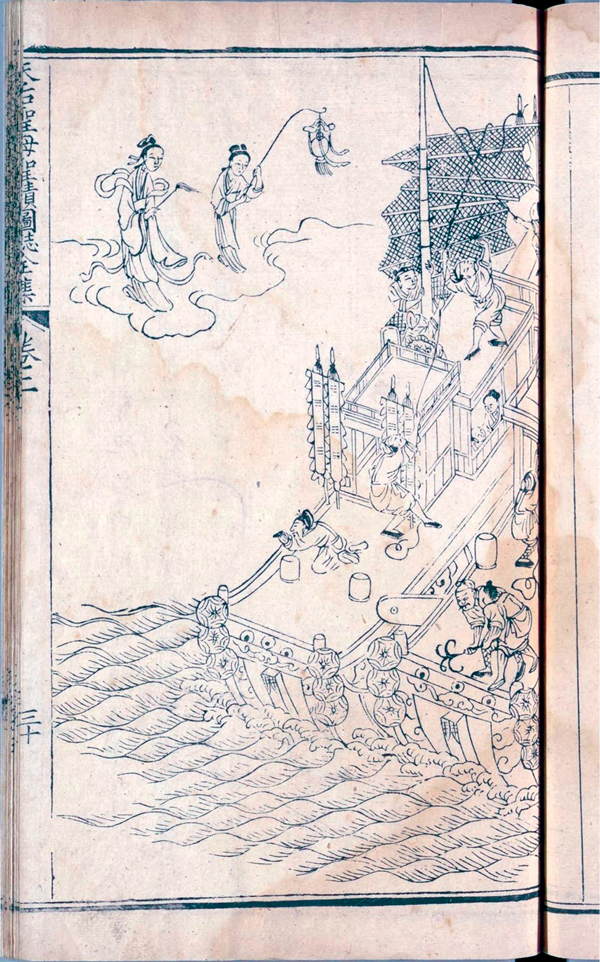 天后聖母聖蹟圖誌全集
卷二
三十